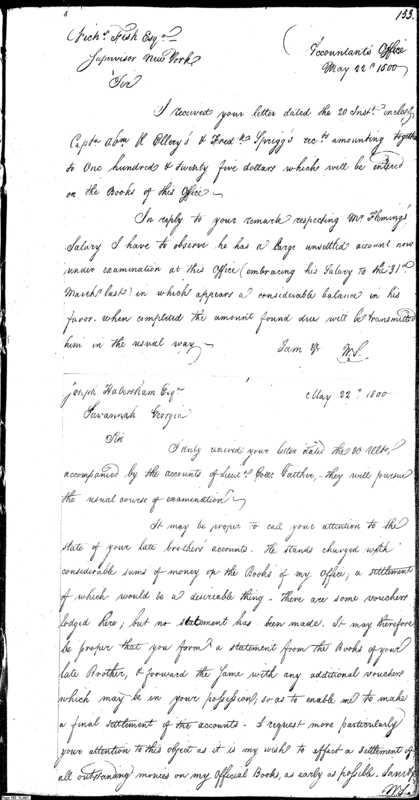 153.
Nichs. Fish Esqr.
Supervisor New York
Accountants Office
May 22d 1800
Sir
I received your letter dated the 20 Inst. inclosing
Captn Abm R Ellery's & Fredk Sprigg's recets amounting together
to One hundred & twenty five dollars which will be entered
on the Books of this Office
In reply to your remark respecting Mr. Fleming's
Salary I have to observe he has a large unsettled account now
under examination at this Office (embracing his Salary to the 31st
March last) in which appears a considerable balance in his
favor. when completed the amount found due will be transmitted
him in the usual way
I am &c W.S.
Joseph Habersham Esqr
Savannah Georgia
May 22d 1800
Sir
I duly received your letter dated the 20 Ulto,
accompanied by the accounts of Lieut. Coll Gaither, - they will pursue
the usual course of examination
It may be proper to call your attention to the
state of your late brothers accounts. He stands charged with
considerable sums of money on the Books of my Office; a settlement
of which would be a desireable thing - There are some vouchers
lodged here; but no statement has been made. It may therefore
be proper that you form a statement from the Books of your
late Brother, & forward the same with any additional vouchers
which may be in your possession, so as to enable me to make
a final settlement of the accounts. I request more particularly
your attention to this object as it is my wish to effect a settlement of
all outstanding monies on my Official Books, as early as possible. I am &c
W.S.